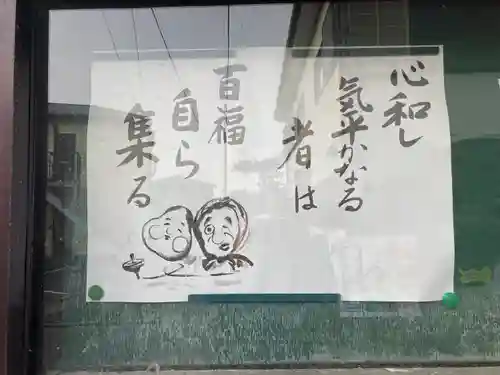 心和し
気平かなる
者は
百福
自ら
集る